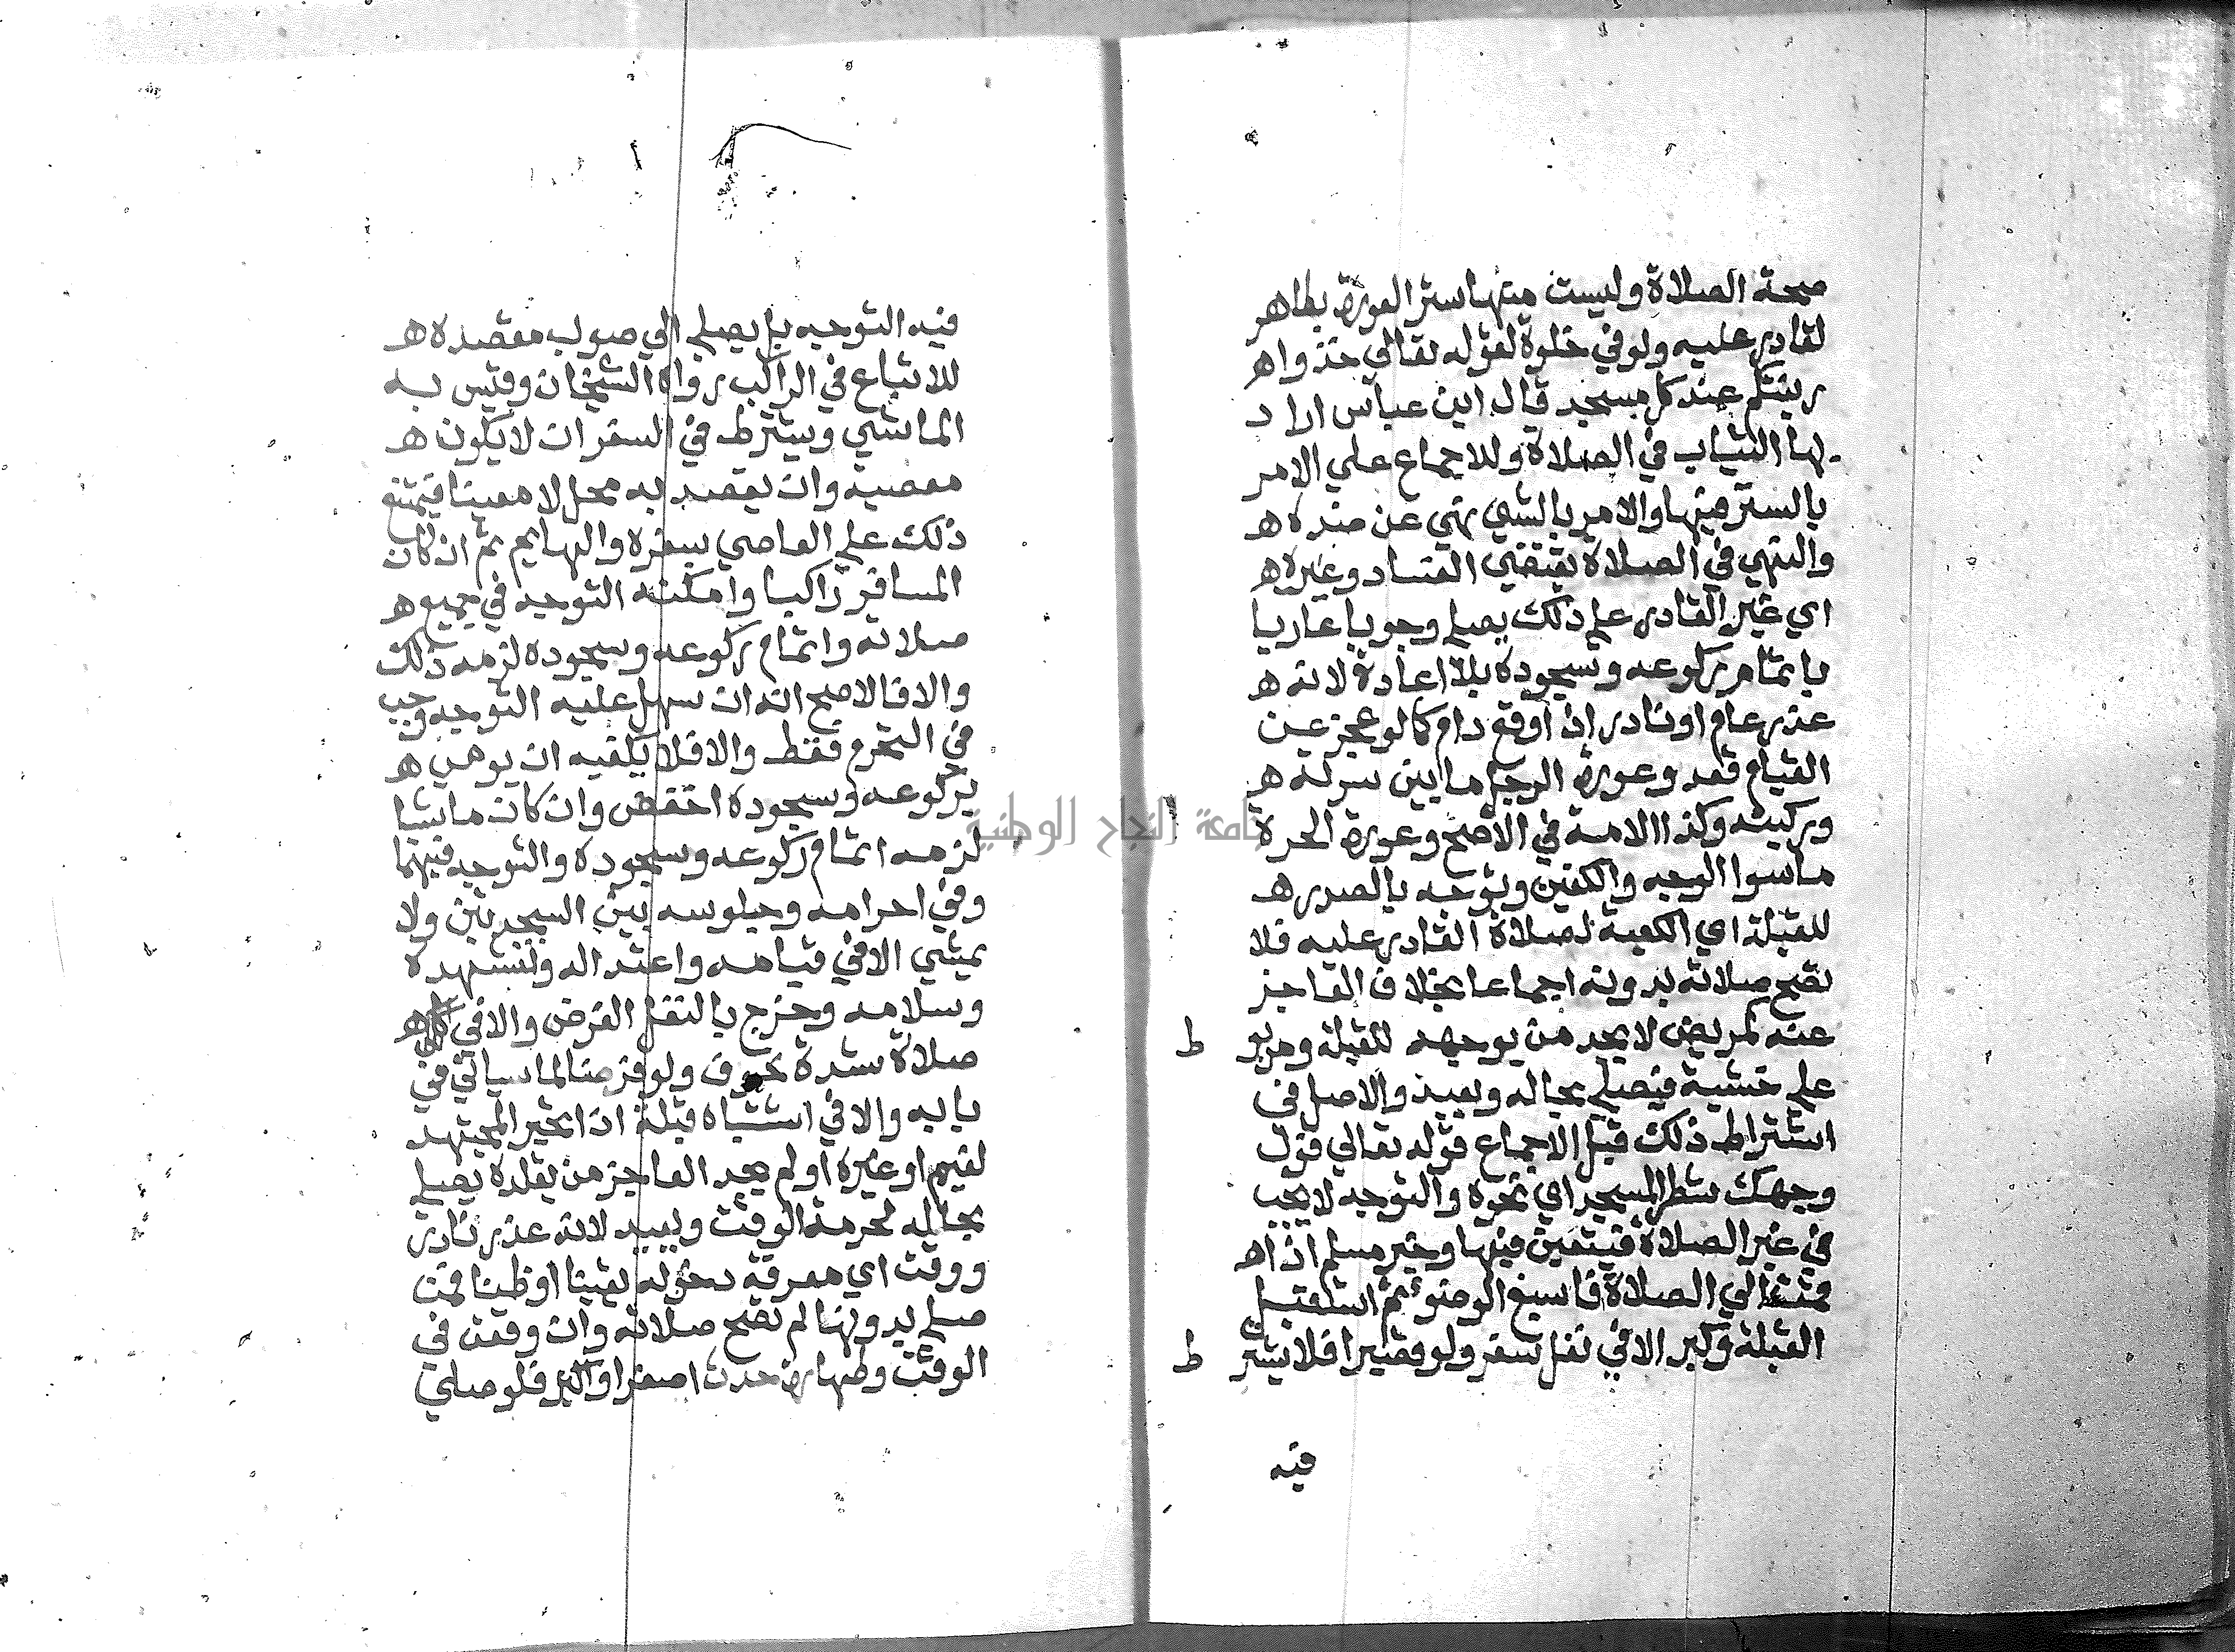 صحة الصلاة وليست منها ستر العورة بطاهر
لقادر عليه ولو في خلوة لقوله تعالي خذوا ه
زينتكم عند كل مسجد قال ابن عباس اراد
بها الثياب في الصلاة وللاجماع علي الامر
بالستر منها والامر بالشي نهي عن ضده ه
والنهي في الصلاة يقتضي الفساد وغيره ه
اي غير القادر علي ذلك يصلي وجوبا عاريا
باتمام ركوعه وسجوده بلا اعادة لانه ه
عذر عام او نادر اذا وقع دام كما لو عجز عن
القيام قعد وعورة الرجل ما بين سرته ه
وركبته وكذا الامة في الاصح وعورة الحرة
ما سوا الوجه والكفين وتوجه بالصدر ه
للقبلة اي الكعبة لصلاة القادر عليه فلا
تصح صلاته بدونه اجماعا بخلاف العاجز
عنه لمريض لا يجد من يوجهه للقبلة ومربو ط
علي خشبة فيصلي بحاله ويعيد والاصل في
اشتراط ذلك قبل الاجماع قوله تعالي فول
وجهك شطر المسجد اي نحوه والتوجه لا يجب
في غير الصلاة فيتعين فيها وخبر مسلم اذا ه
قمت الي الصلاة فاسبغ الوضوء ثم استقبل
القبلة وكبر الا في نفل سفر ولو قصيرا فلا يشتر ط
فيه
فيه التوجه بل يصلي الي صوب مقصده ه
للاتباع في الراكب رواه الشيخان وقيس به
الماشي ويشترط في السفر ان لا يكون ه
معصية وان يقصد به محل لا معينا فيمتنع
ذلك علي العاصي بسفره والهايم ثم ان كان
المسافر راكبا وامكنه التوجه في جميع ه
صلاته واتمام ركوعه وسجوده لزمه ذلك
والا فالاصح انه ان سهل عليه التوجه وجب
في التحرم فقط والا فلا يكفيه ان يومي ه
بركوعه وسجوده اخفض وان كان ماشيا
لزمه اتمام ركوعه وسجوده والتوجه فيهما
وفي احرامه وجلوسه بين السجدتين ولا
يمشي الا في قيامه واعتداله وتشهده
وسلامه وخرج بالنفل الفرض والا في ه
صلاة شدة خوف ولو فرضا لما سياتي في
بابه والا في اشتباه قبلة اذا تحير المجتهد
لغيم او غيره او لم يجد العاجز من يقلده يصلي
بحاله لحرمة الوقت ويعيد لانه عذر نادر
ووقت اي معرفة دخوله يقينا او ظنا فمن
صلي بدونها لم تصح صلاته وان وقعت في
الوقت وطهارة حدث اصغر او اكبر فلو صلي
جامعة النجاح الوطنية